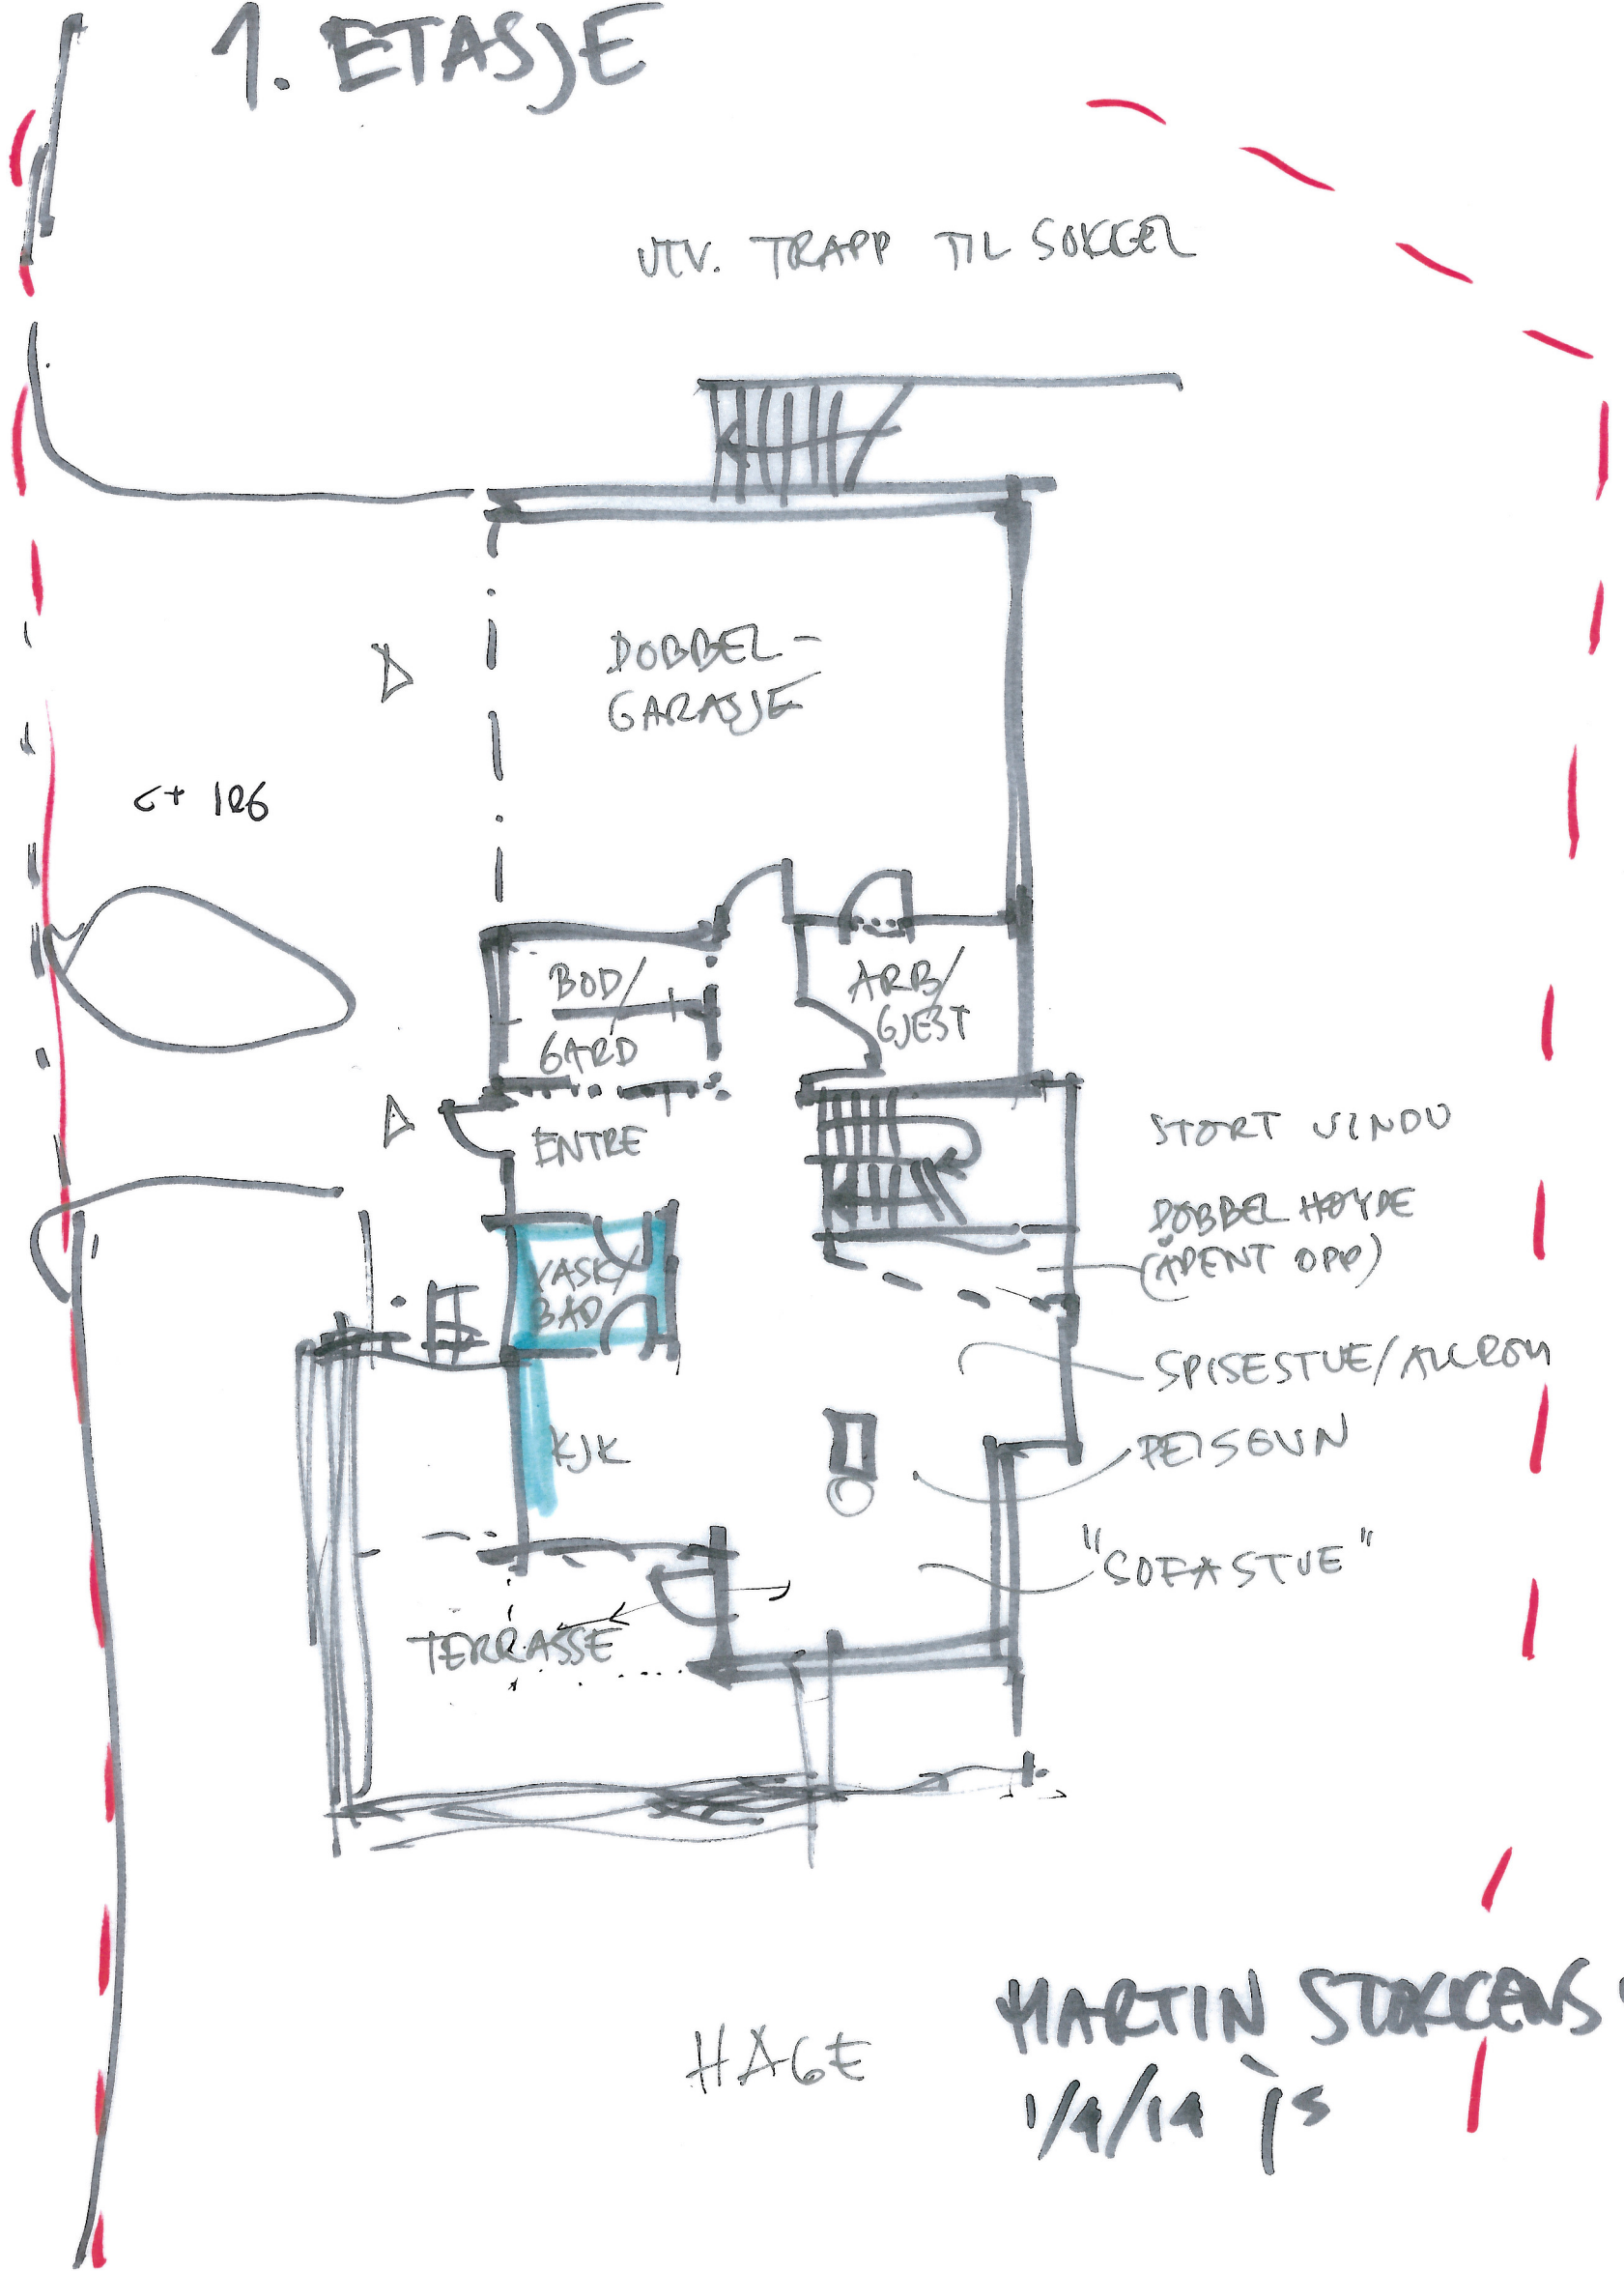 1. ETASJE
UTV. TRAPP TIL SOKKEL
DOBBEL-
GARASJE
C+ 126
BOD/
GARD
ARB/
GJEST
ENTRE
STORT VINDU
DOBBEL HØYDE
(ÅPENT OPP)
VASK/
BAD
SPISESTUE/ALLROM
KJK
PEISOVN
"SOFASTUE"
TERRASSE
HAGE
MARTIN STOKKENS
1/4/14 js